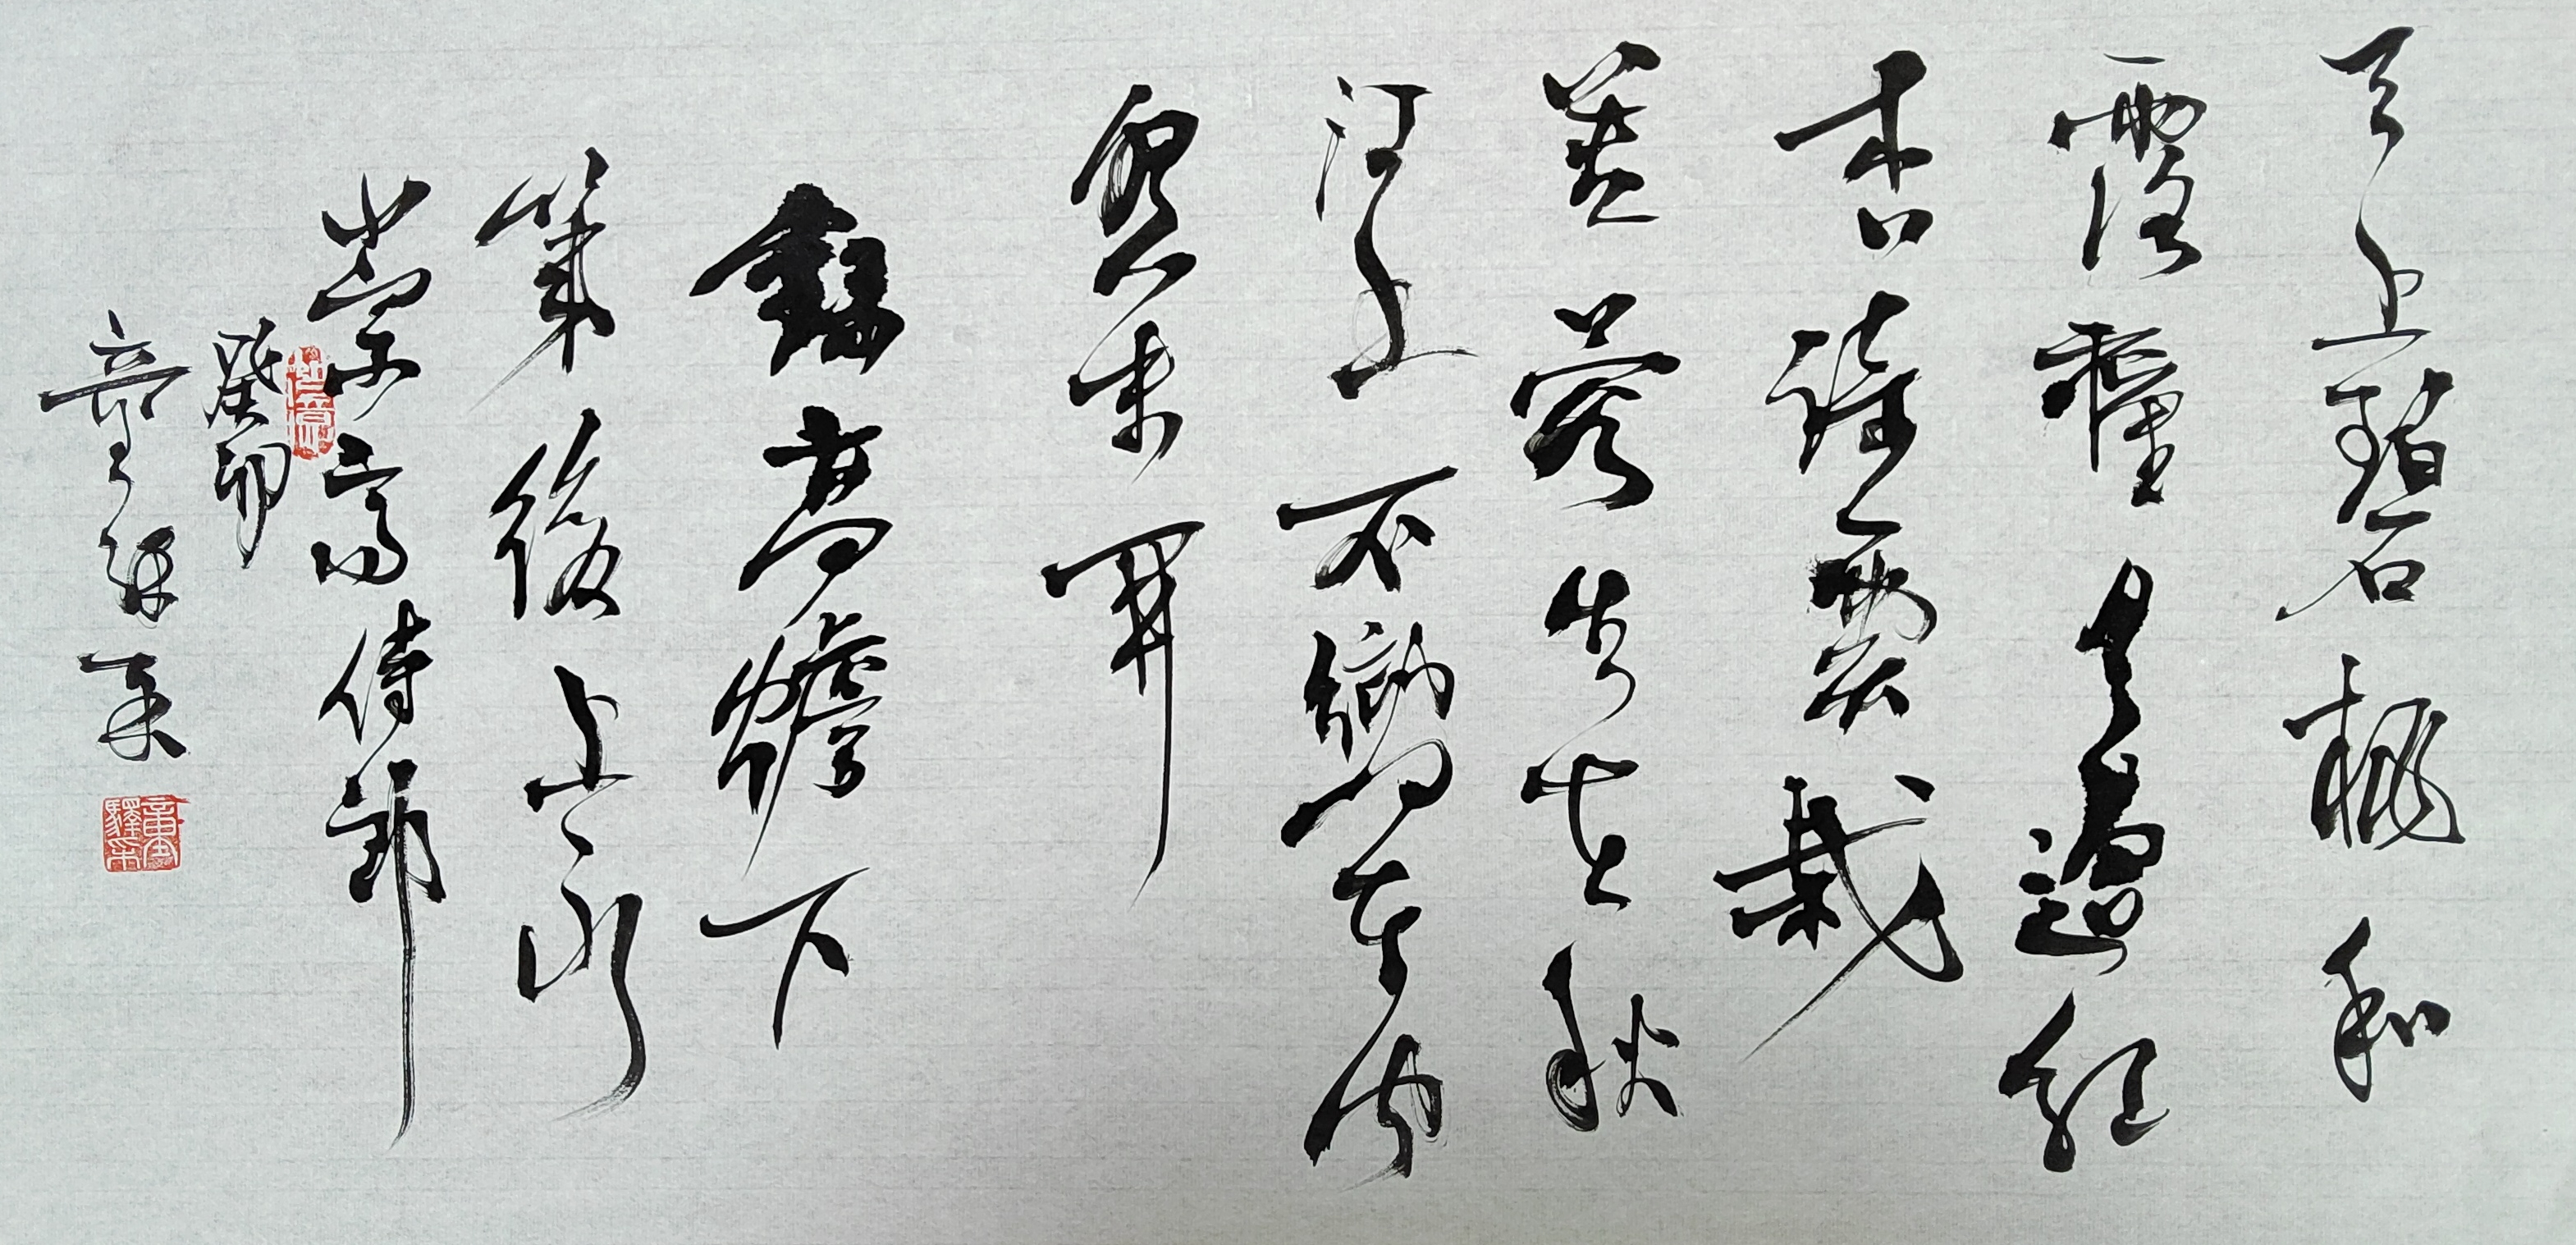 天上碧桃和
露種日邊紅
杏倚雲栽
芙蓉生在秋
江上不嚮東風
怨未開
錄高蟾下
第後上永
崇高侍郎
癸卯
童驛采
童驛采